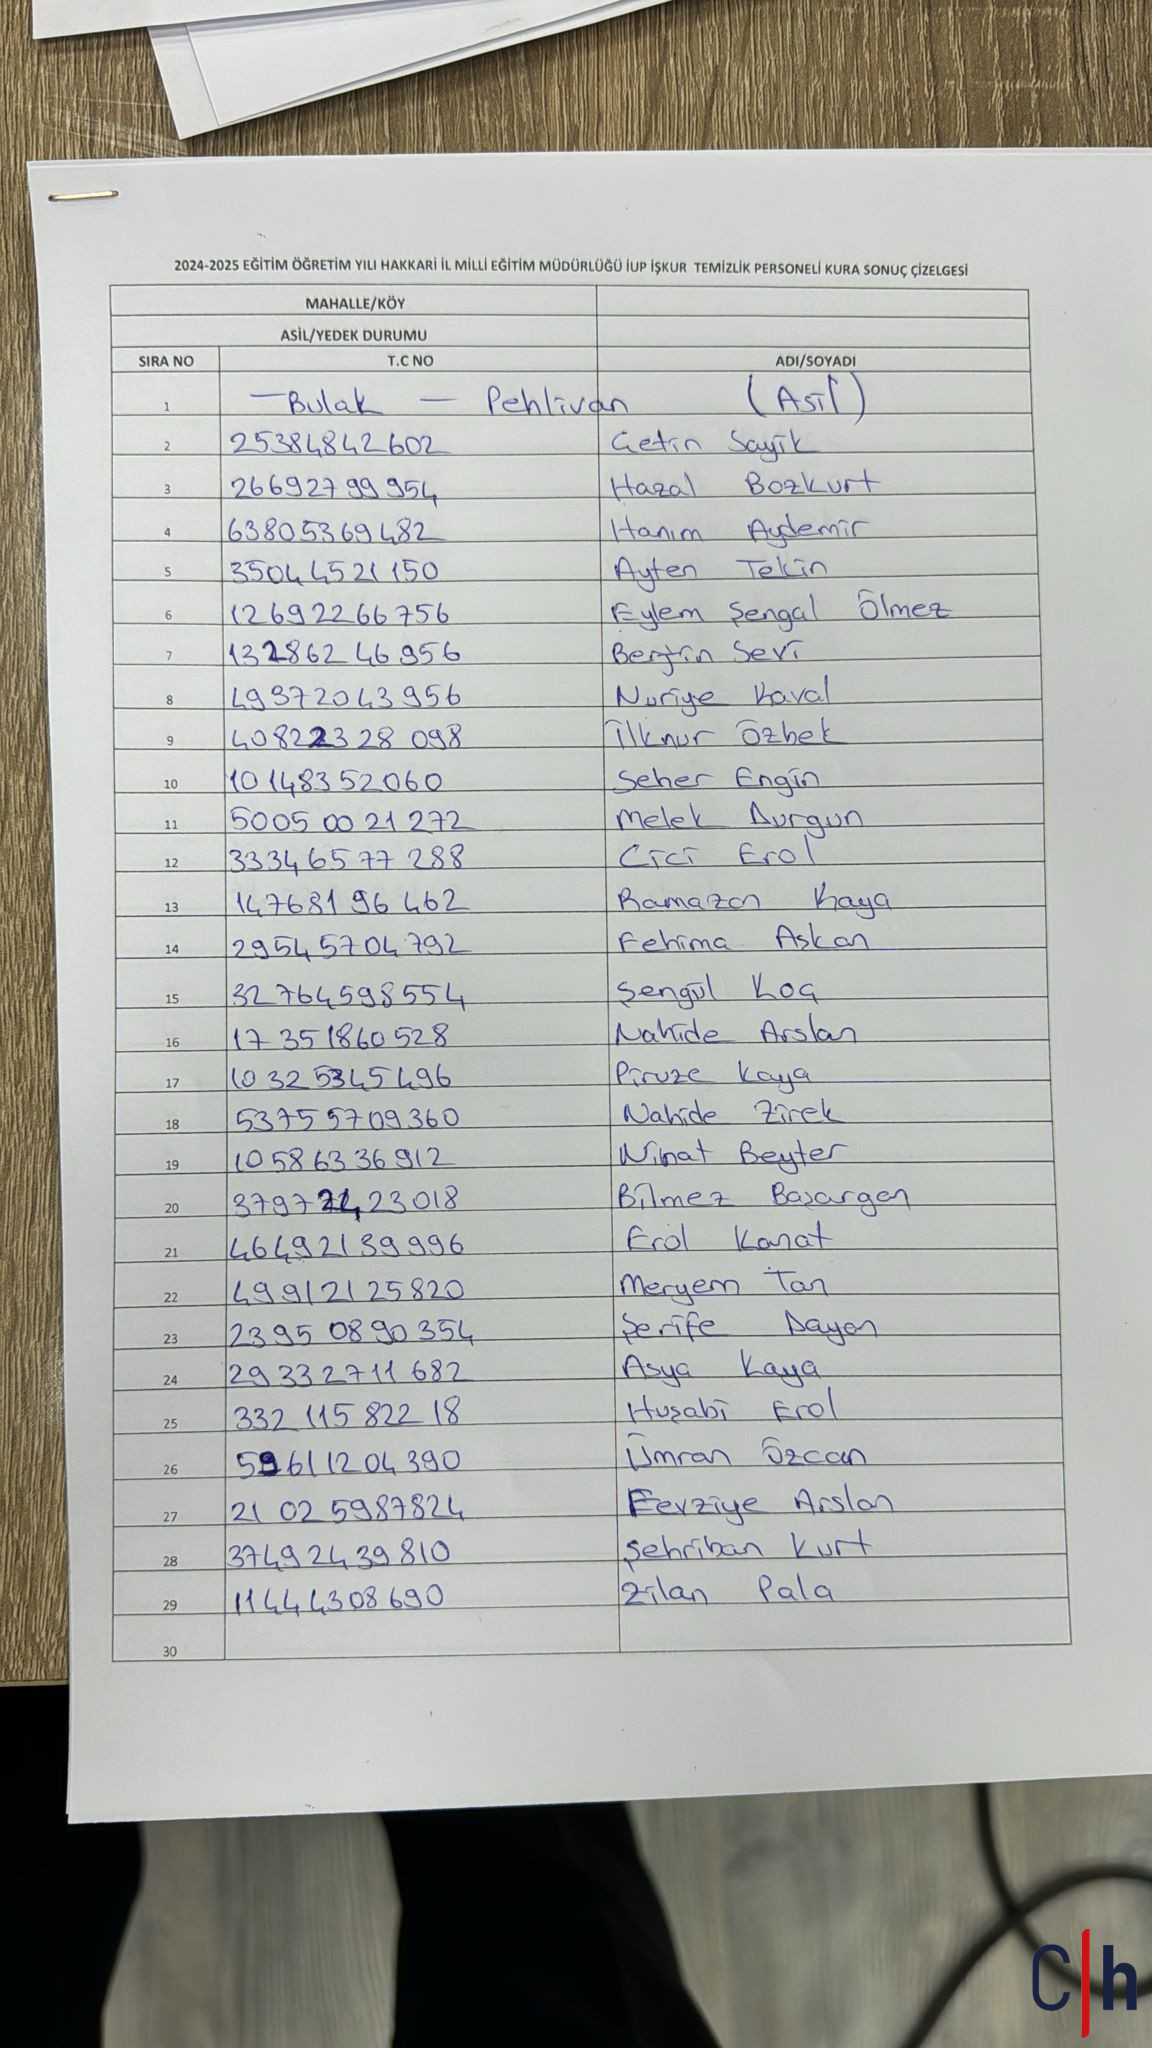 2024-2025 EĞİTİM ÖĞRETİM YILI HAKKARİ İL MİLLİ EĞİTİM MÜDÜRLÜĞÜ İUP İŞKUR TEMİZLİK PERSONELİ KURA SONUÇ ÇİZELGESİ
MAHALLE/KÖY
ASİL/YEDEK DURUMU
SIRA NO T.C NO ADI/SOYADI
1 — Bulak — Pehlivan (Asil)
2 25384842602 Çetin Sayik
3 26692799954 Hazal Bozkurt
4 63805369482 Hanım Aydemir
5 35044521150 Ayten Tekin
6 12692266756 Eylem Şengal Ölmez
7 132862 46956 Berfin Sevi
8 49372043956 Nuriye Kaval
9 40822328 098 İlknur Özbek
10 10148352060 Seher Engin
11 5005 00 21 272 Melek Durgun
12 33346577 288 Cici Erol
13 147681 96 462 Ramazan Kaya
14 29545704792 Fehima Aşkan
15 32764598554 Şengül Koç
16 17 351860528 Nahide Arslan
17 10325345496 Piruze Kaya
18 53755709360 Nahide Zirek
19 10586336912 Nihat Beyter
20 37972423018 Bilmez Başargan
21 46492139996 Erol Kanat
22 49912125820 Meryem Tan
23 23950890354 Şerife Dayan
24 29332711682 Asya Kaya
25 332 115 822 18 Huşabi Erol
26 59611204390 Ümran Özcan
27 21 02 5987824 Fevziye Arslan
28 37492439810 Şehriban Kurt
29 11444308690 Zilan Pala
30
C|h